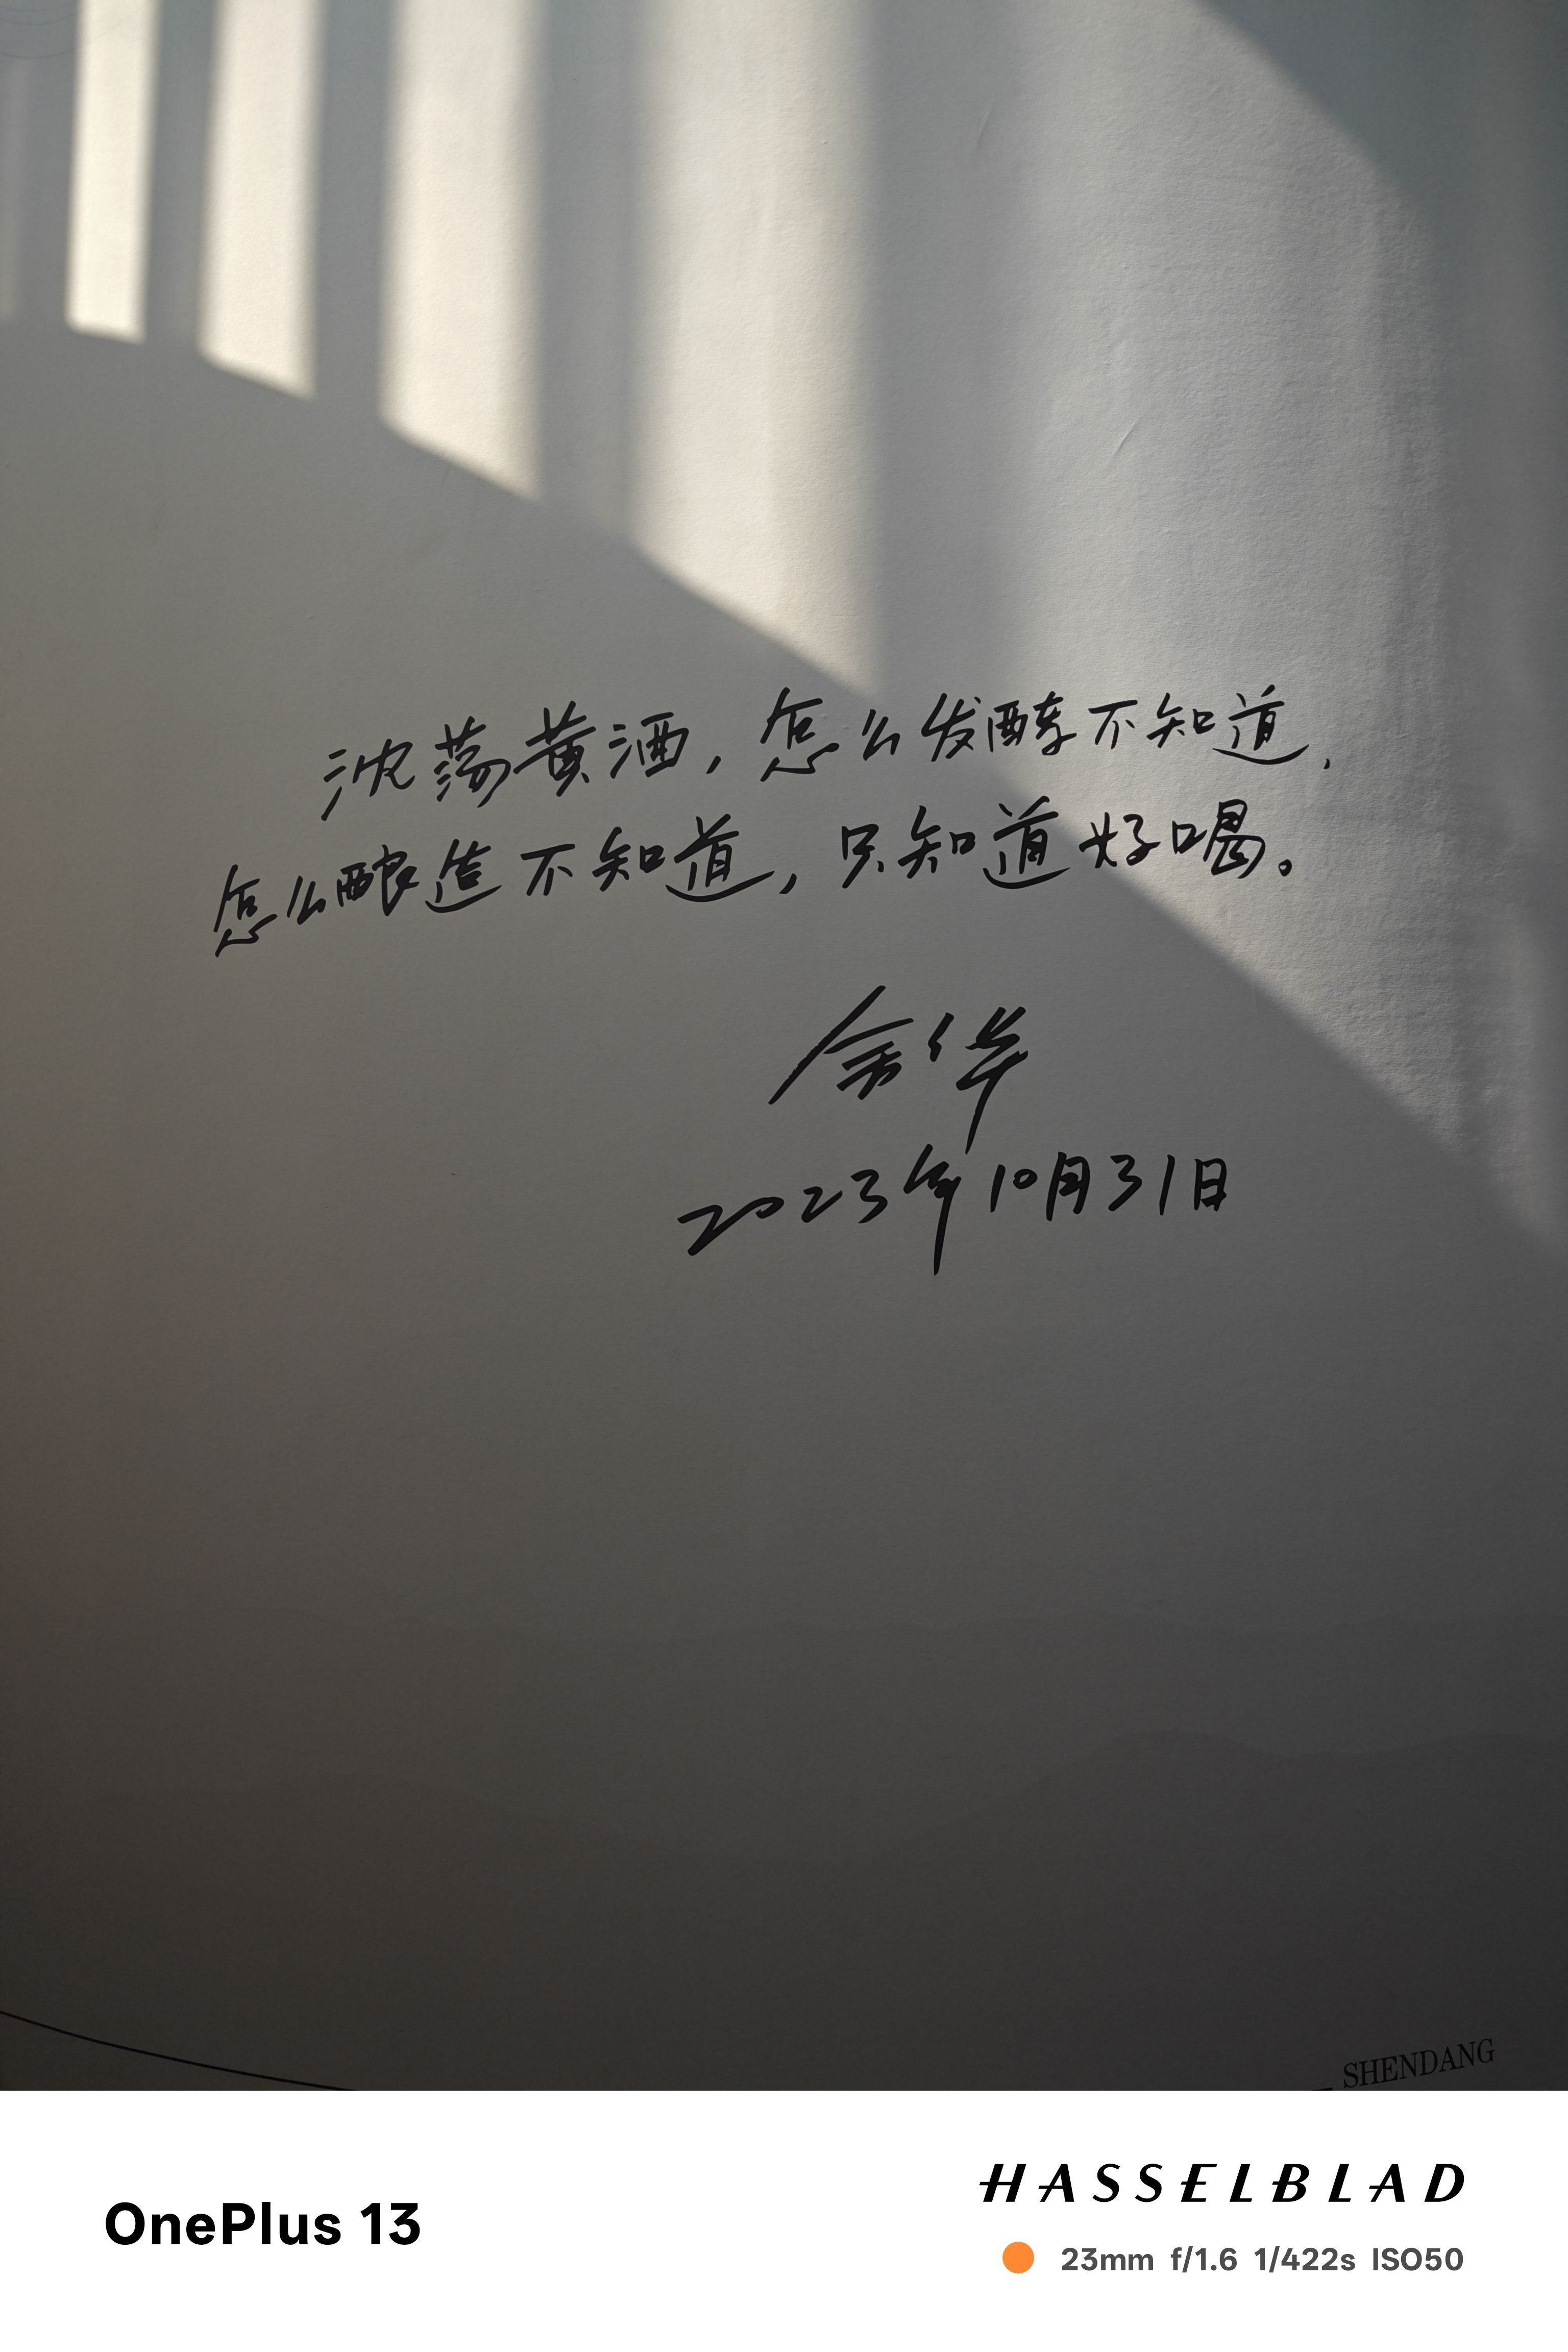 沈荡黄酒，怎么发酵不知道，
怎么酿造不知道，只知道好喝。
余华
2023年10月31日
SHENDANG
OnePlus 13
HASSELBLAD
23mm f/1.6 1/422s ISO50